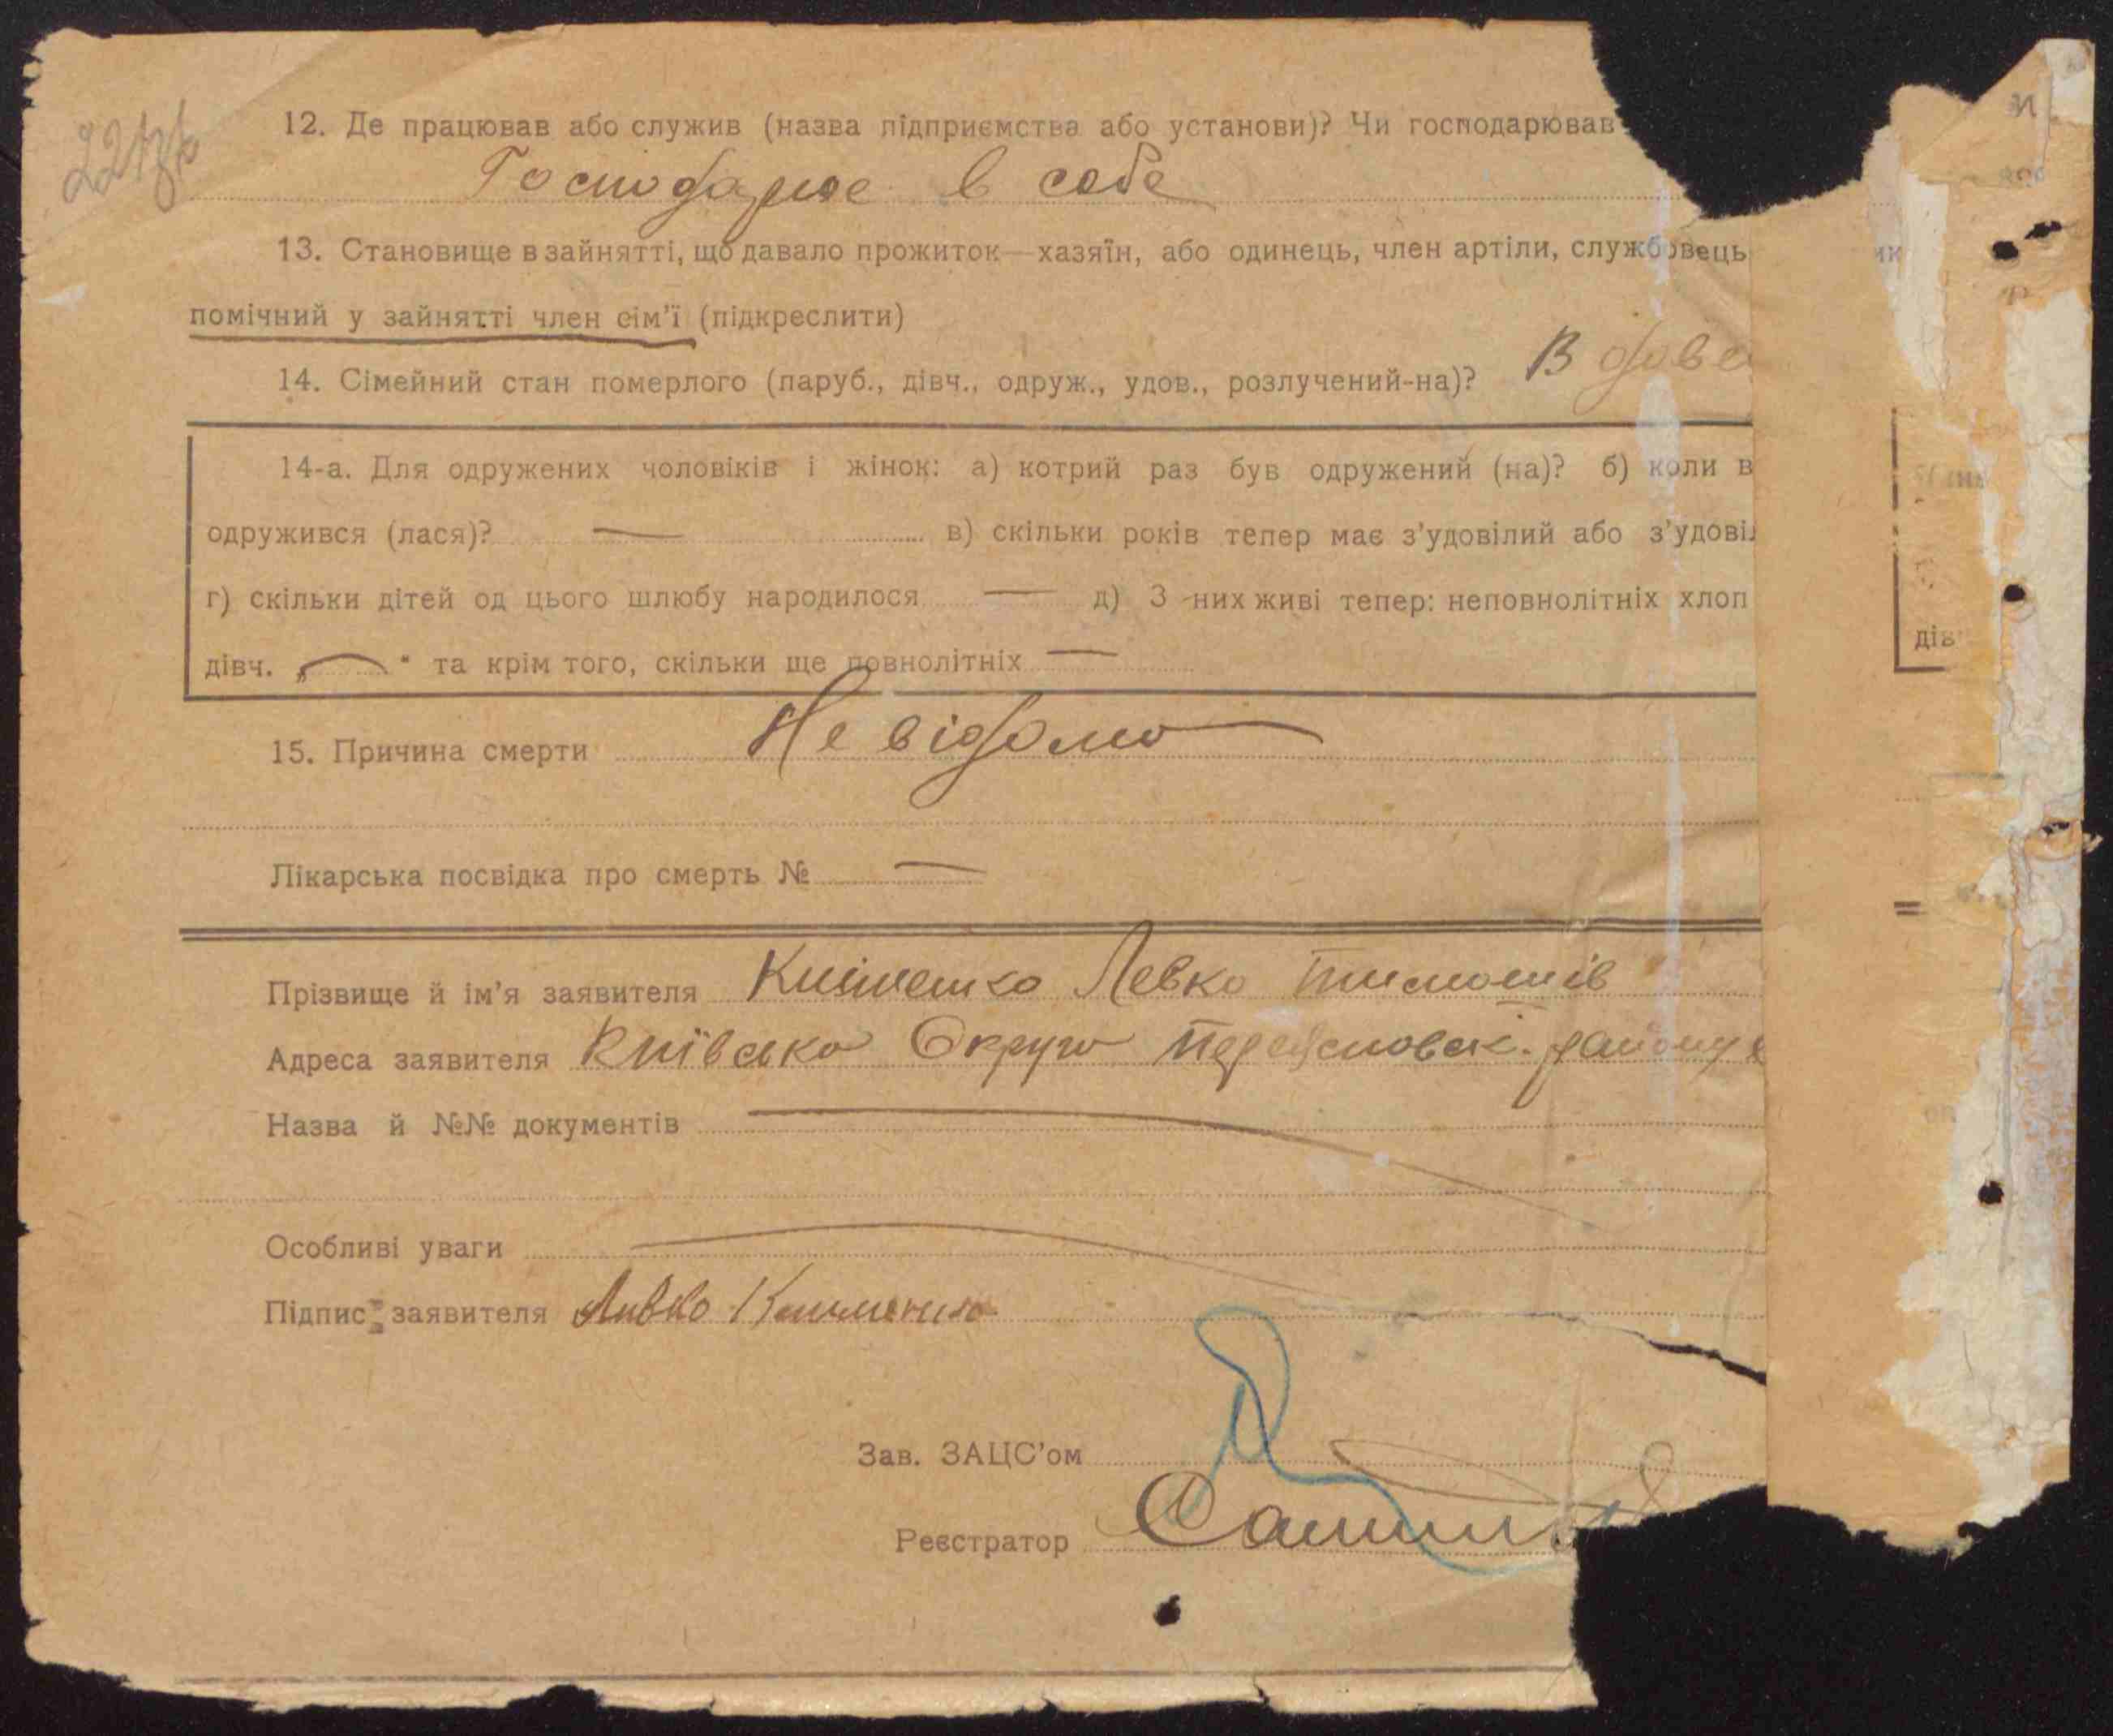 12. Де працював або служив (назва підприємства або установи)? Чи господарював
Господарює в себе
13. Становище в зайнятті, що давало прожиток—хазяїн, або одинець, член артіли, службовець
помічний у зайнятті член сім'ї (підкреслити)
14. Сімейний стан померлого (паруб., дівч., одруж., удов., розлучений-на)? Вдова
14-а. Для одружених чоловіків і жінок: а) котрий раз був одружений (на)? б) коли в
одружився (лася)? — в) скільки років тепер має з'удовілий або з'удовіл
г) скільки дітей од цього шлюбу народилося — д) З них живі тепер: неповнолітніх хлоп
дівч. „—“ та крім того, скільки ще повнолітніх —
15. Причина смерти Невідомо
Лікарська посвідка про смерть № —
Прізвище й ім'я заявителя Левко Тимошів
Адреса заявителя Київська Округа району
Назва й №№ документів —
Особливі уваги —
Підпис заявителя
Зав. ЗАЦС'ом
Реєстратор